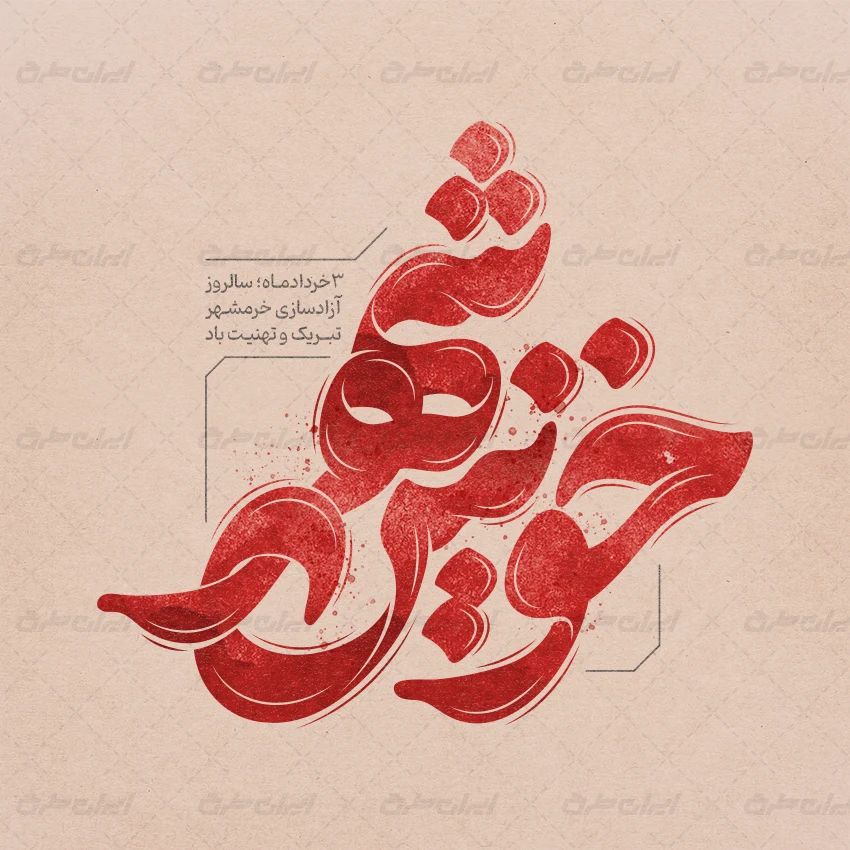 خونین
شهر
۳ خردادماه؛ سالروز
آزادسازی خرمشهر
تبریک و تهنیت باد
ایران طرح